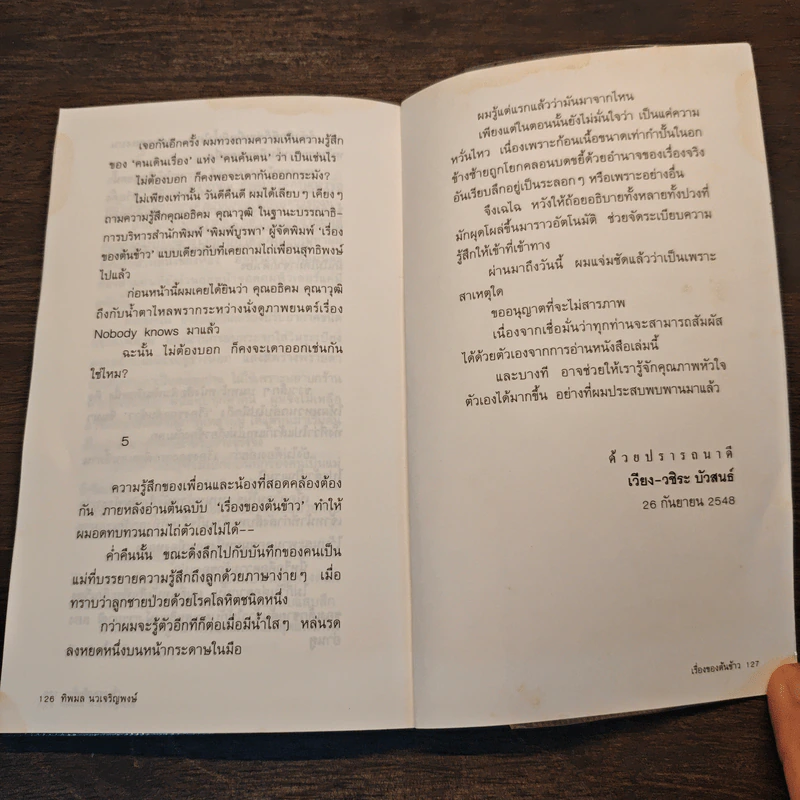 เจอกันอีกครั้ง ผมทวงถามความเห็นความรู้สึก
ของ ‘คนเดินเรื่อง’ แห่ง ‘คนค้นฅน’ ว่า เป็นเช่นไร
ไม่ต้องบอก ก็คงพอจะเดากันออกกระมัง?
ไม่เพียงเท่านั้น วันดีคืนดี ผมได้เลียบๆ เคียงๆ
ถามความรู้สึกคุณอธิคม คุณาวุฒิ ในฐานะบรรณาธิ-
การบริหารสำนักพิมพ์ ‘พิมพ์บูรพา’ ผู้จัดพิมพ์ ‘เรื่อง
ของต้นข้าว’ แบบเดียวกับที่เคยถามไถ่เพื่อนสุทธิพงษ์
ไปแล้ว
ก่อนหน้านี้ผมเคยได้ยินว่า คุณอธิคม คุณาวุฒิ
ถึงกับน้ำตาไหลพรากระหว่างนั่งดูภาพยนตร์เรื่อง
Nobody knows มาแล้ว
ฉะนั้น ไม่ต้องบอก ก็คงจะเดาออกเช่นกัน
ใช่ไหม?
5
ความรู้สึกของเพื่อนและน้องที่สอดคล้องต้อง
กัน ภายหลังอ่านต้นฉบับ ‘เรื่องของต้นข้าว’ ทำให้
ผมอดทบทวนถามไถ่ตัวเองไม่ได้--
ค่ำคืนนั้น ขณะดิ่งลึกไปกับบันทึกของคนเป็น
แม่ที่บรรยายความรู้สึกถึงลูกด้วยภาษาง่ายๆ เมื่อ
ทราบว่าลูกชายป่วยด้วยโรคโลหิตชนิดหนึ่ง
กว่าผมจะรู้ตัวอีกทีก็ต่อเมื่อมีน้ำใสๆ หล่นรด
ลงหยดหนึ่งบนหน้ากระดาษในมือ
126 ทิพมล นวเจริญพงษ์
ผมรู้แต่แรกแล้วว่ามันมาจากไหน
เพียงแต่ในตอนนั้นยังไม่มั่นใจว่า เป็นแค่ความ
หวั่นไหว เนื่องเพราะก้อนเนื้อขนาดเท่ากำปั้นในอก
ข้างซ้ายถูกโยกคลอนบดขยี้ด้วยอำนาจของเรื่องจริง
อันเรียบลึกอยู่เป็นระลอกๆ หรือเพราะอย่างอื่น
จึงเฉไฉ หวังให้ถ้อยอธิบายทั้งหลายทั้งปวงที่
มักผุดโผล่ขึ้นมาราวอัตโนมัติ ช่วยจัดระเบียบความ
รู้สึกให้เข้าที่เข้าทาง
ผ่านมาถึงวันนี้ ผมแจ่มชัดแล้วว่าเป็นเพราะ
สาเหตุใด
ขออนุญาตที่จะไม่สารภาพ
เนื่องจากเชื่อมั่นว่าทุกท่านจะสามารถสัมผัส
ได้ด้วยตัวเองจากการอ่านหนังสือเล่มนี้
และบางที อาจช่วยให้เรารู้จักคุณภาพหัวใจ
ตัวเองได้มากขึ้น อย่างที่ผมประสบพบพานมาแล้ว
ด้วยปรารถนาดี
เวียง-วชิระ บัวสนธ์
26 กันยายน 2548
เรื่องของต้นข้าว 127